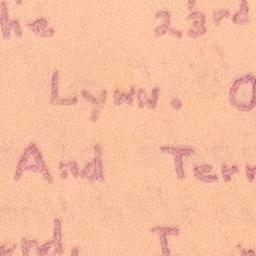 he 23rd
Lynn.
And Terr
I